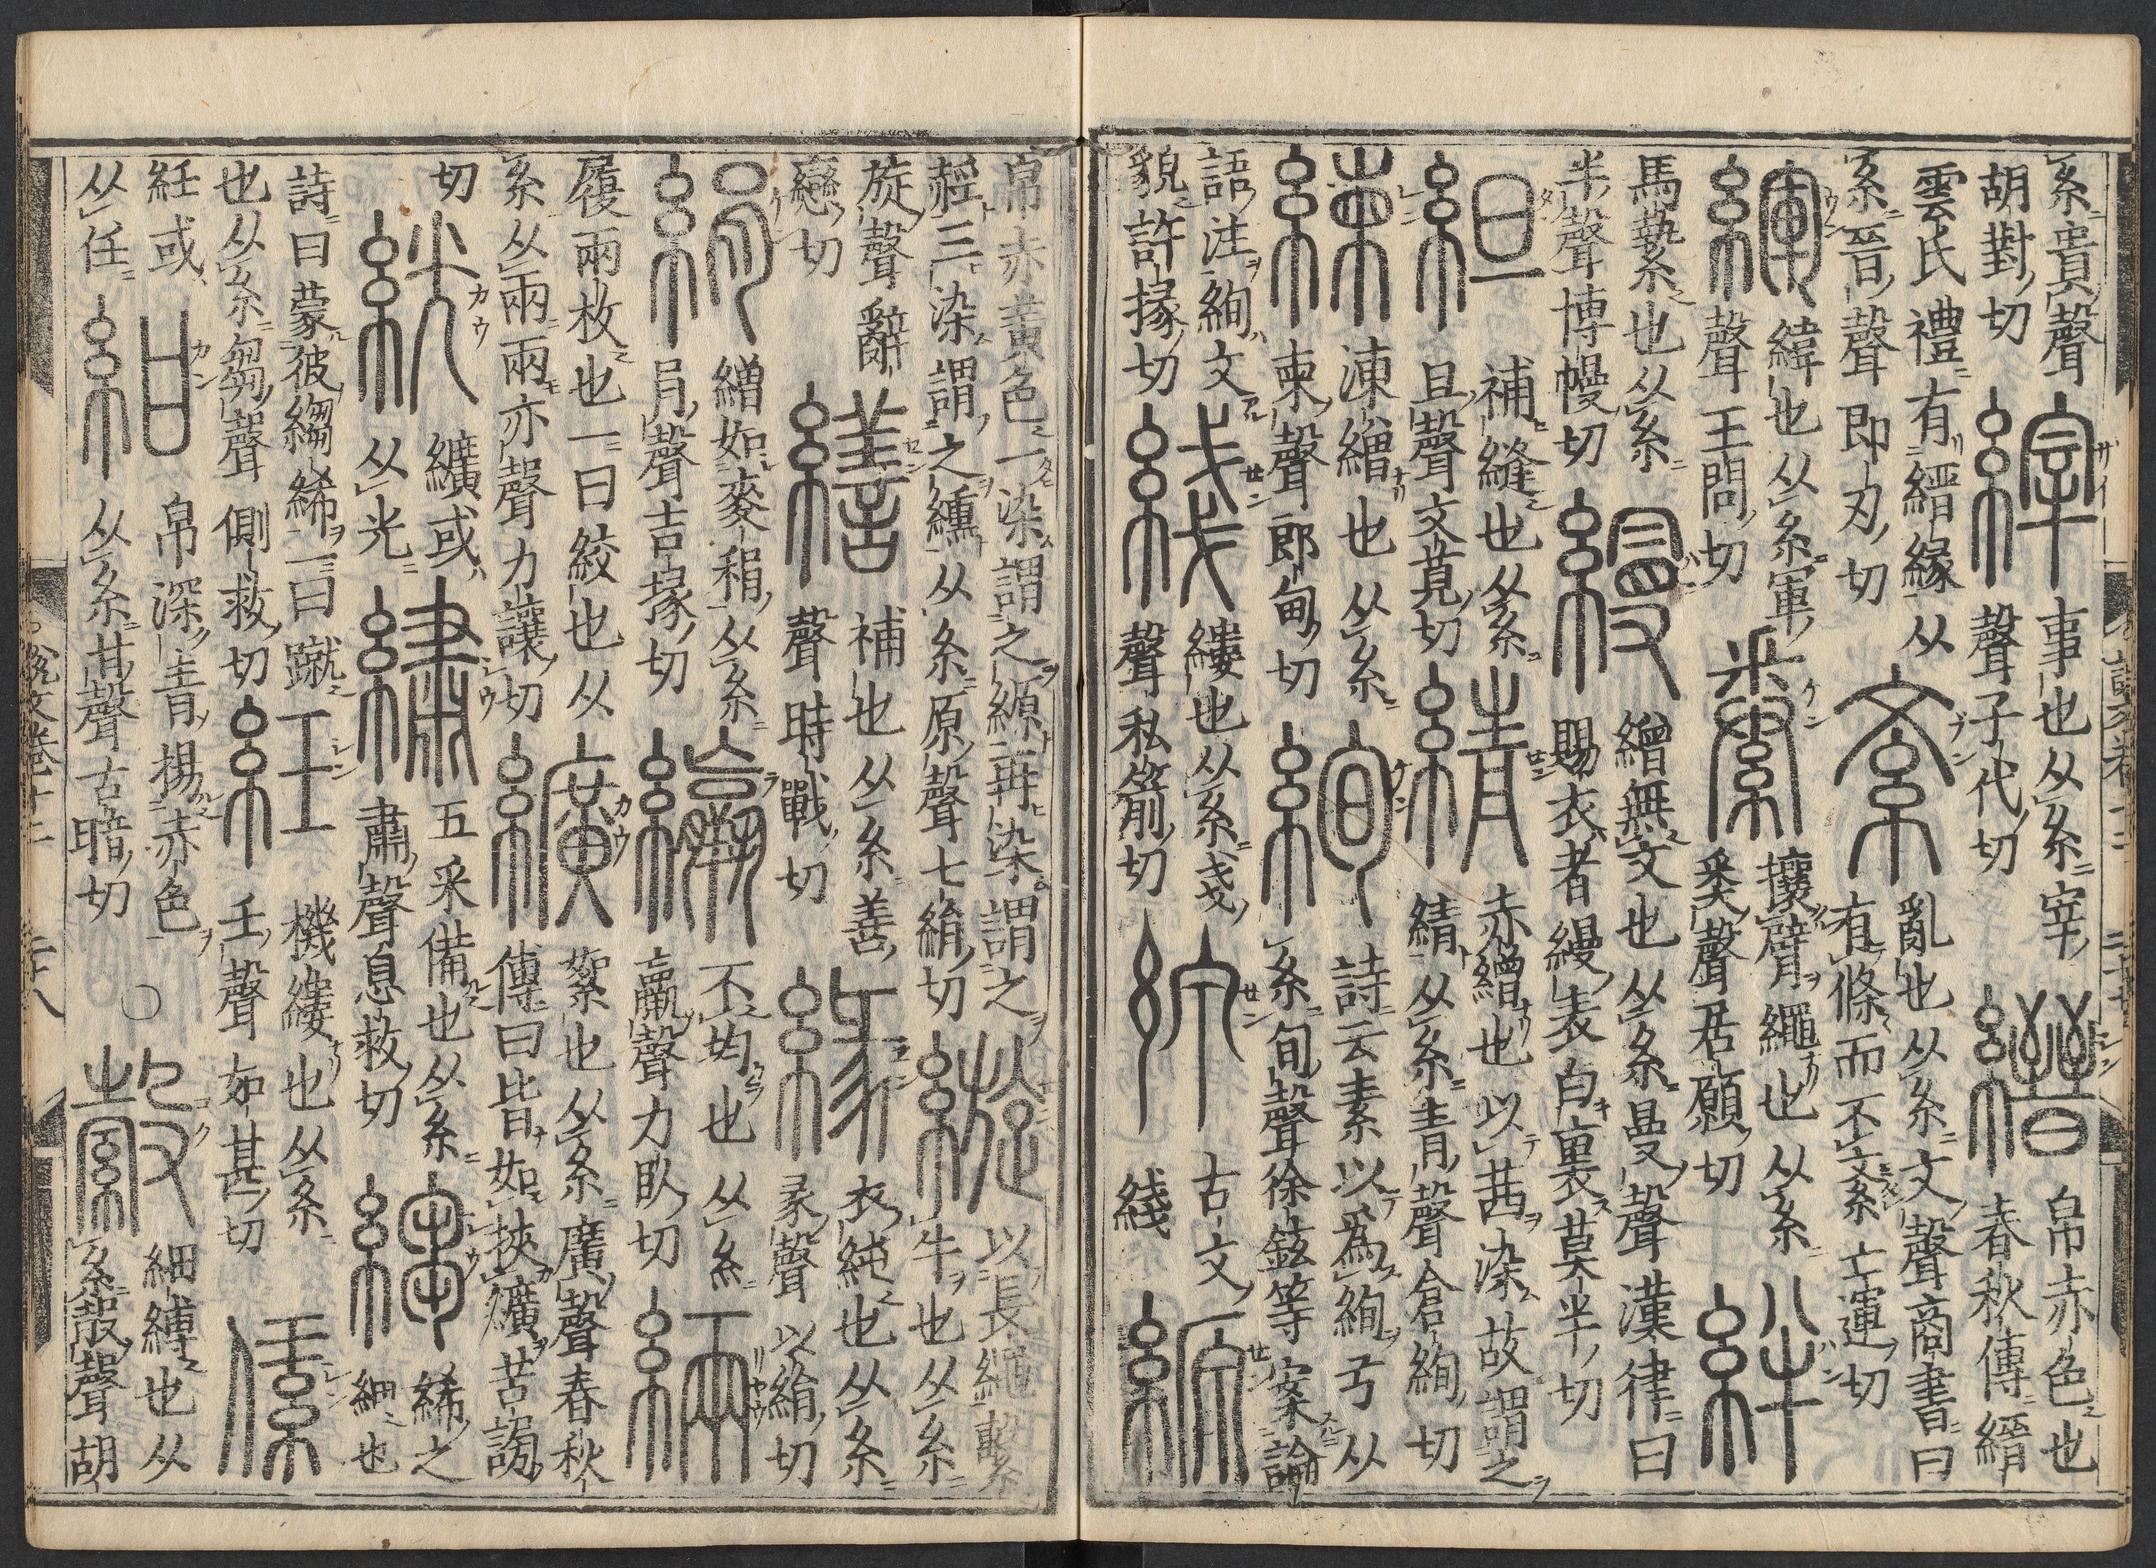 糸貴聲
胡對切
縡
事也从糸宰
聲子代切
縉
帛赤色也
春秋傳縉
雲氏禮有縉緣从
糸晉聲即刃切
紊
亂也从糸文聲商書曰
有條而不紊亡運切
緷
緯也从糸軍
聲王問切
絭
攘臂繩也从糸
𢍏聲居願切
絆
馬縶也从糸
半聲博幔切
縵
繒無文也从糸曼聲漢律曰
賜衣者縵表白裏莫半切
䋎
補縫也从糸
旦聲文莧切
綪
赤繒也以茜染故謂之
綪从糸青聲倉絢切
練
湅繒也从糸
柬聲郎甸切
絢
詩云素以為絢兮从
糸旬聲徐鉉等案論
語注絢文
貌許掾切
綫
縷也从糸戔
聲私箭切
線
古文
綫
縓
帛赤黄色一染謂之縓再染謂之
䞓三染謂之纁从糸原聲七絹切
縼
以長繩繫
牛也从糸
旋聲辭
戀切
繕
補也从糸善
聲時戰切
緣
衣純也从糸
彖聲以絹切
絹
繒如麥稍从糸
肙聲吉掾切
不均也从糸
羸聲力臥切
緉
履兩枚也一曰絞也从
糸从兩兩亦聲力讓切
纊
絮也从糸廣聲春秋
傳曰皆如挾纊苦謗
切
絖
纊或
从光
繡
五采備也从糸
肅聲息救切
縐
絺之
細也
詩曰蒙彼縐絺一曰蹴
也从糸芻聲側救切
紝
機縷也从糸
壬聲如甚切
紝或
从任
紺
帛深青揚赤色
从糸甘聲古暗切
○
縠
細縛也从
糸㱿聲胡
說文卷十二
二十八